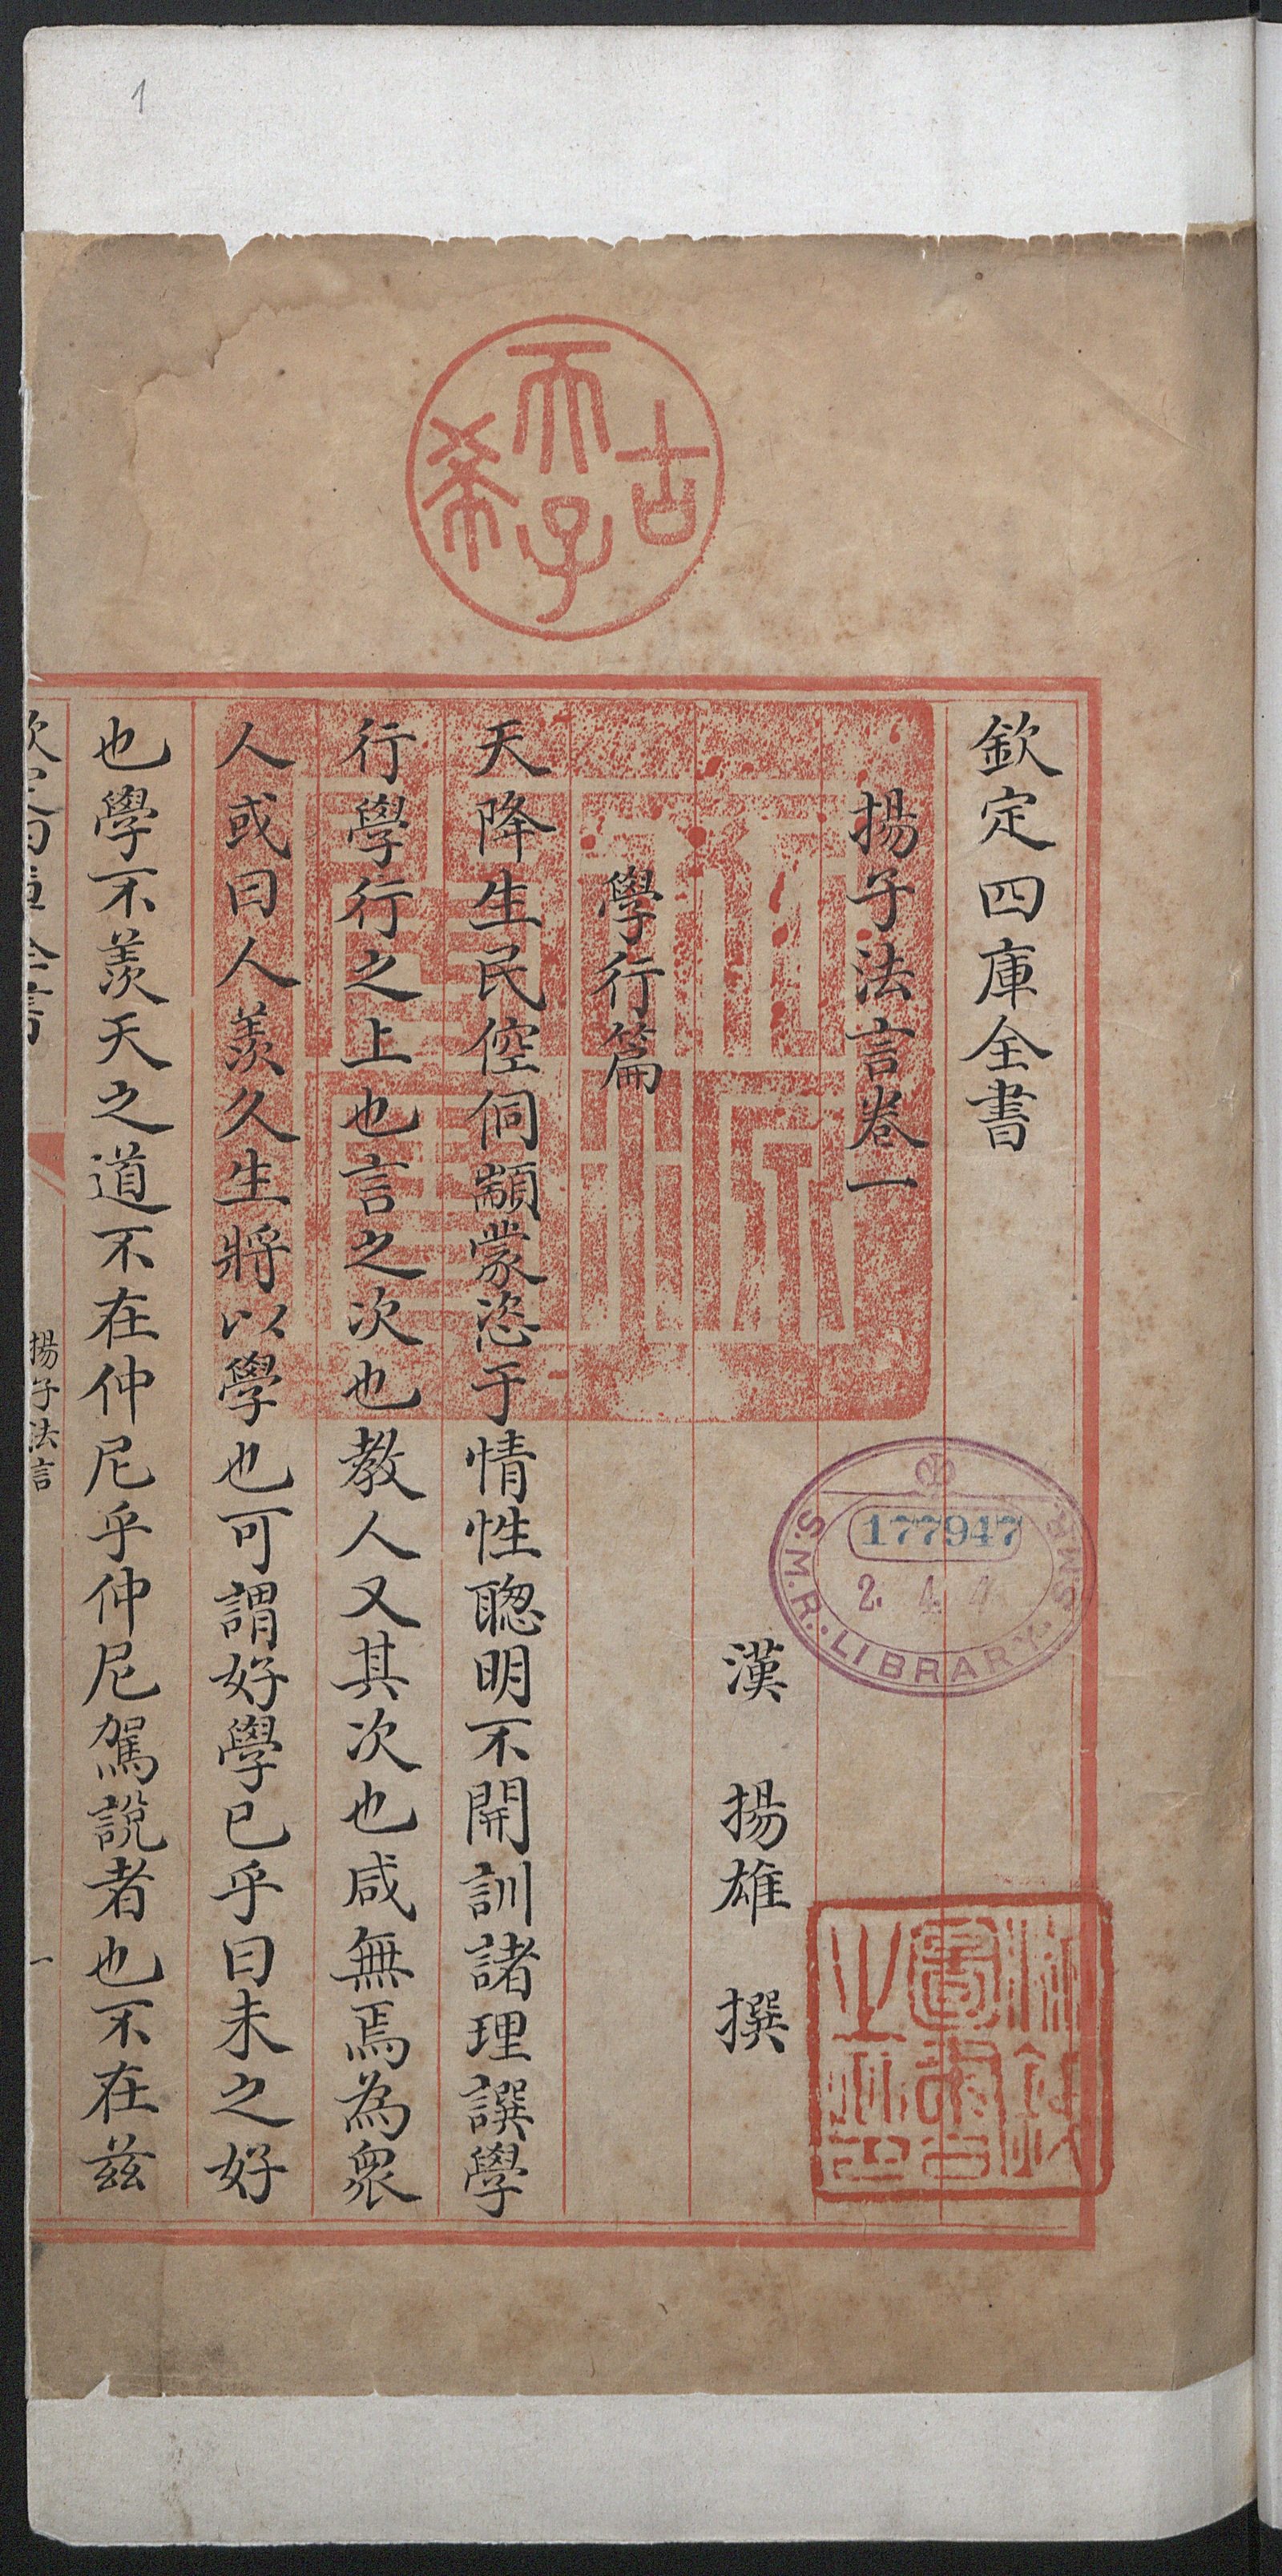 1
古希天子
欽定四庫全書
揚子法言卷一
漢 揚雄 撰
學行篇
天降生民倥侗顓蒙恣于情性聰明不開訓諸理譔學
行學行之上也言之次也教人又其次也咸無焉為衆
人或曰人羨久生將以學也可謂好學已乎曰未之好
也學不羨天之道不在仲尼乎仲尼駕說者也不在兹
欽定四庫全書
揚子法言
一
S.M.R. LIBRARY S.M.R.
177947
2. 4. 4